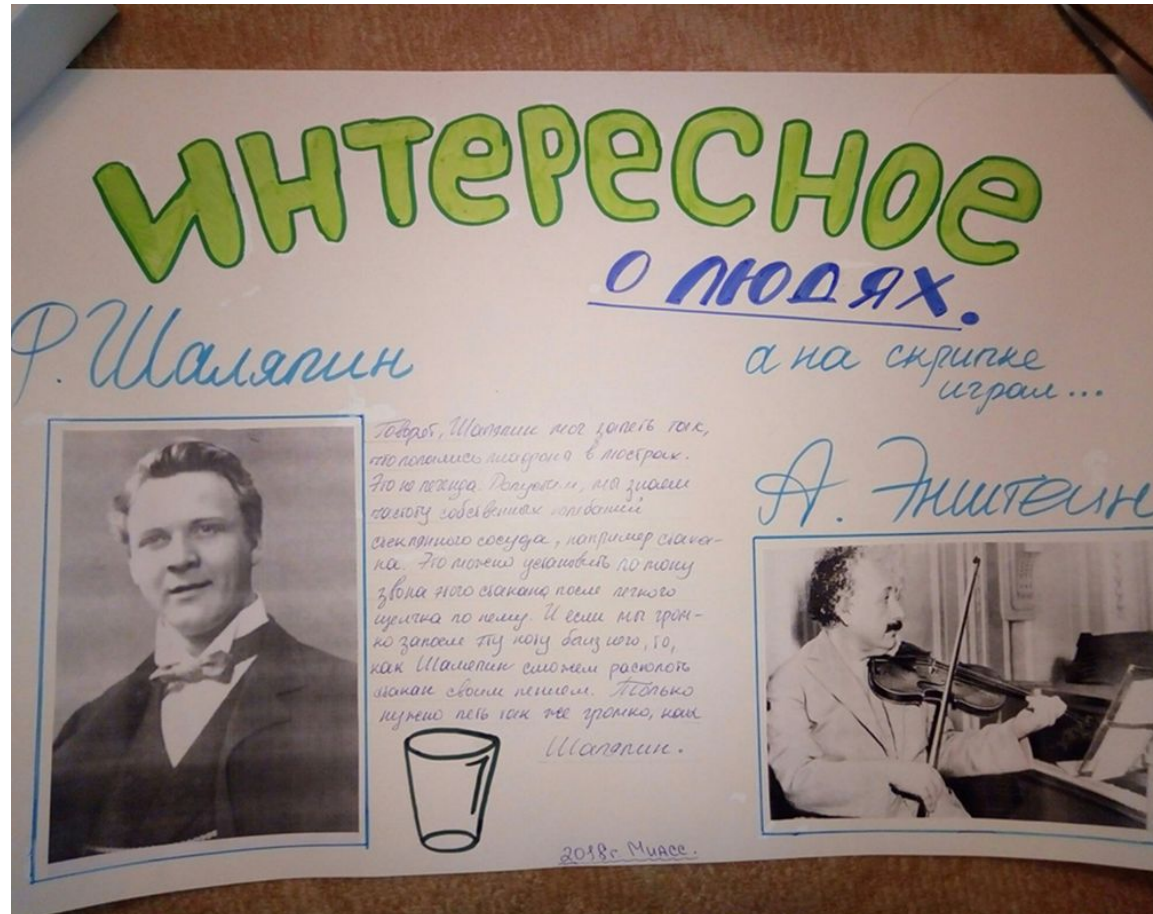 ИНТЕРЕСНОЕ
О ЛЮДЯХ.
Ф. Шаляпин
а на скрипке
играл...
А. Энштеин
Говорят, Шаляпин мог запеть так,
что лопались плафоны в люстрах.
Это не легенда. Допустим, мы знаем
частоту собственных колебаний
стеклянного сосуда, например стака-
на. Это можно установить по тону
звона этого стакана после легкого
щелчка по нему. И если мы гром-
ко запоем эту ноту близ него, то,
как Шаляпин сможем расколоть
стакан своим пением. Только
нужно петь так же громко, как
Шаляпин.
2018г Миасс.